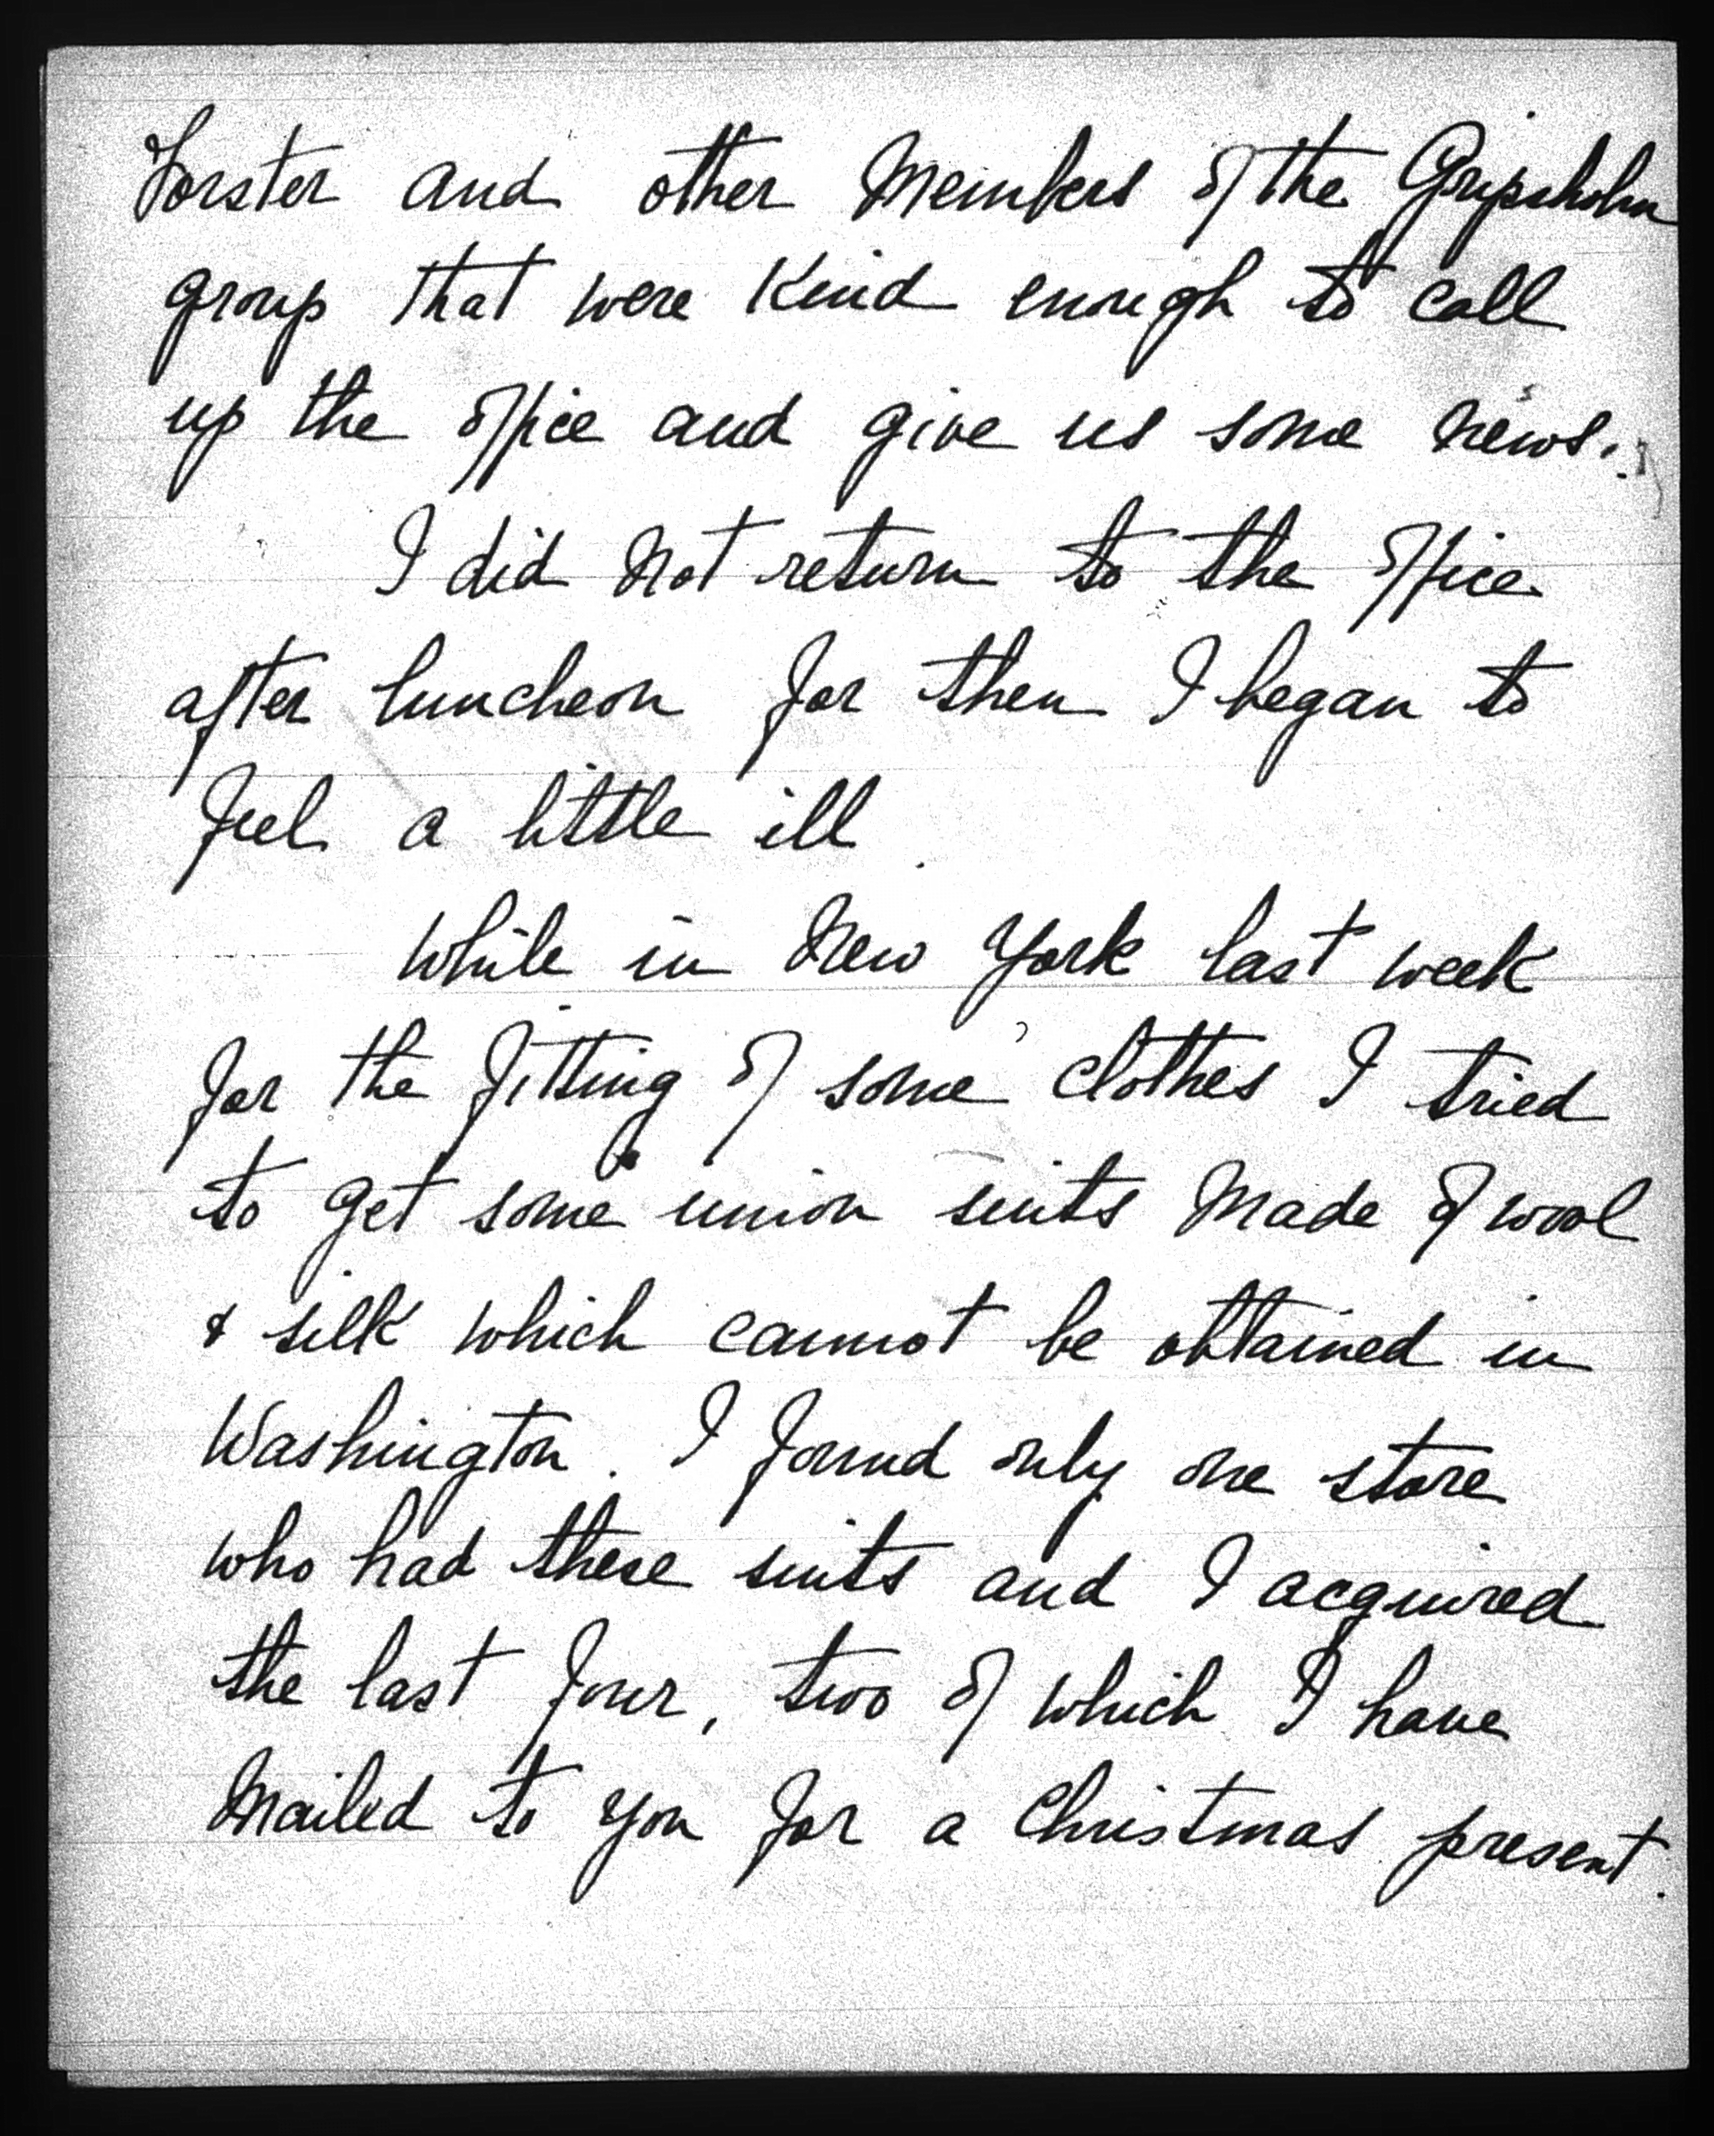 Forster and other Members of the Gripsholm
group that were Kind enough to call
up the office and give us some news.
I did not return to the office
after luncheon for then I began to
feel a little ill.
While in New York last week
for the fitting of some clothes I tried
to get some union suits made of wool
& silk which cannot be obtained in
Washington. I found only one store
who had these suits and I acquired
the last four, two of which I have
mailed to you for a Christmas present.